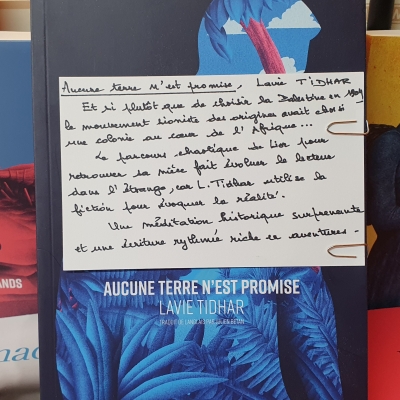 Aucune terre n'est promise, Lavie TIDHAR
Et si plutôt que de choisir la Palestine en
le mouvement sioniste des origines avait choisi
une colonie au cœur de l'Afrique...
Le parcours chaotique de Lior pour
retrouver sa nièce fait évoluer le lecteur
dans l'étrange, car L. Tidhar utilise la
fiction pour évoquer la réalité.
Une méditation historique surprenante
et une écriture rythmée riche en aventures.
AUCUNE TERRE N'EST PROMISE
LAVIE TIDHAR
TRADUIT DE L'ANGLAIS PAR JULIEN BÉTAN
ANDS